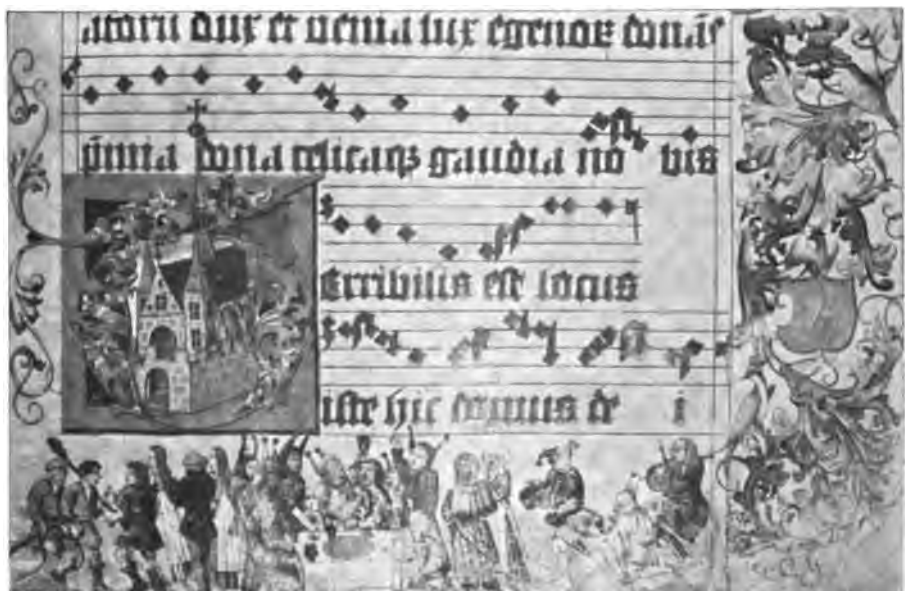 atorū dux et uenia lux egenoꝝ
p̄mia dona celicaqꝫ gaudia no bis
Terribilis est locus
iste hic domus de i